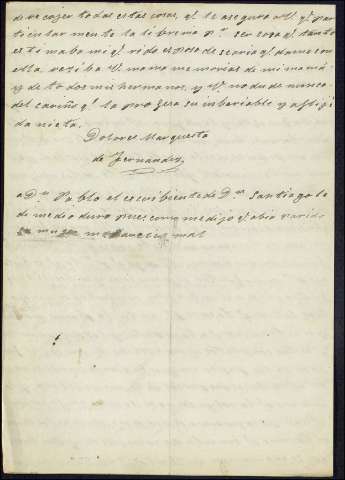 de recojer todas estas cosas, q.e le aseguro a V. q.e par
ticularmente la librema p.r ser cosa q.e tanto
estimaba mi q.e rido esposo desearia q.e darme con
ella reciba V. mama memorias de mi mamá
y de todos mis hermanos, y V. no dude nunca
del cariño q.e la profesa su inbariable y afliji
da nieta.
Dolores Marquesta
de Fernandez
a D.n Pablo el escribiente de D.n Santiago le
di medio duro pues como me dijo q.e abia parido
su muger me
mal